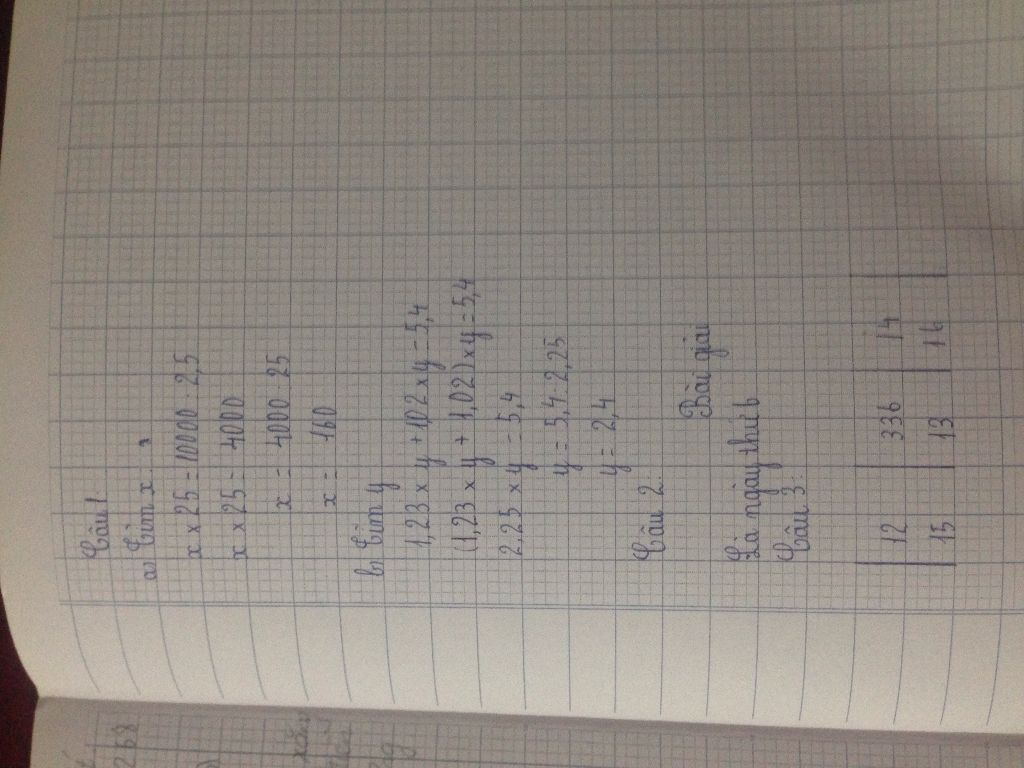 Câu 1
a) Tìm x
x x 25 = 10000 : 2,5
x x 25 = 4000
x = 4000 : 25
x = 160
b) Tìm y
1,23 x y + 102 x y = 5,4
(1,23 x y + 1,02) x y = 5,4
2,25 x y = 5,4
y = 5,4 : 2,25
y = 2,4
Câu 2
Bài giải
Là ngày thứ 6
Câu 3:
12 336 14
15 13 16